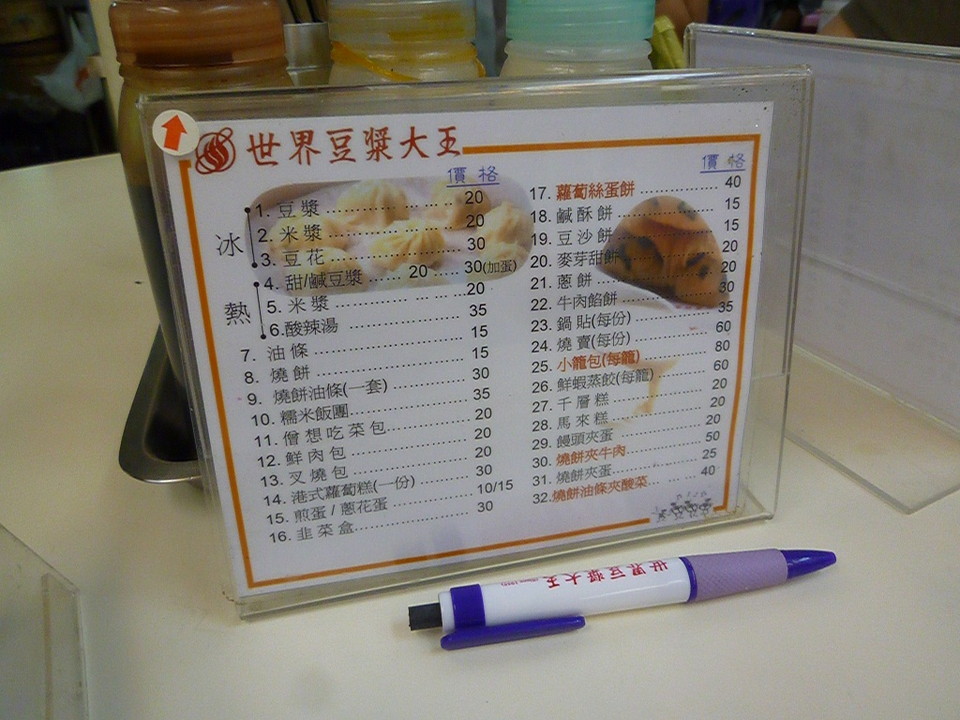 世界豆漿大王
價格
冰
1. 豆漿 ............ 20
2. 米漿 ............ 20
3. 豆花 ............ 30
熱
4. 甜/鹹豆漿 ...... 20 ...... 30(加蛋)
5. 米漿 ............ 20
6. 酸辣湯 ............ 35
7. 油條 ............ 15
8. 燒餅 ............ 15
9. 燒餅油條(一套) ............ 30
10. 糯米飯團 ............ 35
11. 僧想吃菜包 ............ 20
12. 鮮肉包 ............ 20
13. 叉燒包 ............ 20
14. 港式蘿蔔糕(一份) ............ 30
15. 煎蛋 / 蔥花蛋 ............ 10/15
16. 韭菜盒 ............ 30
價格
17. 蘿蔔絲蛋餅 ............ 40
18. 鹹酥餅 ............ 15
19. 豆沙餅 ............ 15
20. 麥芽甜餅 ............ 20
21. 蔥餅 ............ 20
22. 牛肉餡餅 ............ 30
23. 鍋貼(每份) ............ 35
24. 燒賣(每份) ............ 60
25. 小籠包(每籠) ............ 80
26. 鮮蝦蒸餃(每籠) ............ 60
27. 千層糕 ............ 20
28. 馬來糕 ............ 20
29. 饅頭夾蛋 ............ 20
30. 燒餅夾牛肉 ............ 50
31. 燒餅夾蛋 ............ 25
32. 燒餅油條夾酸菜 ............ 40
世界豆漿大王